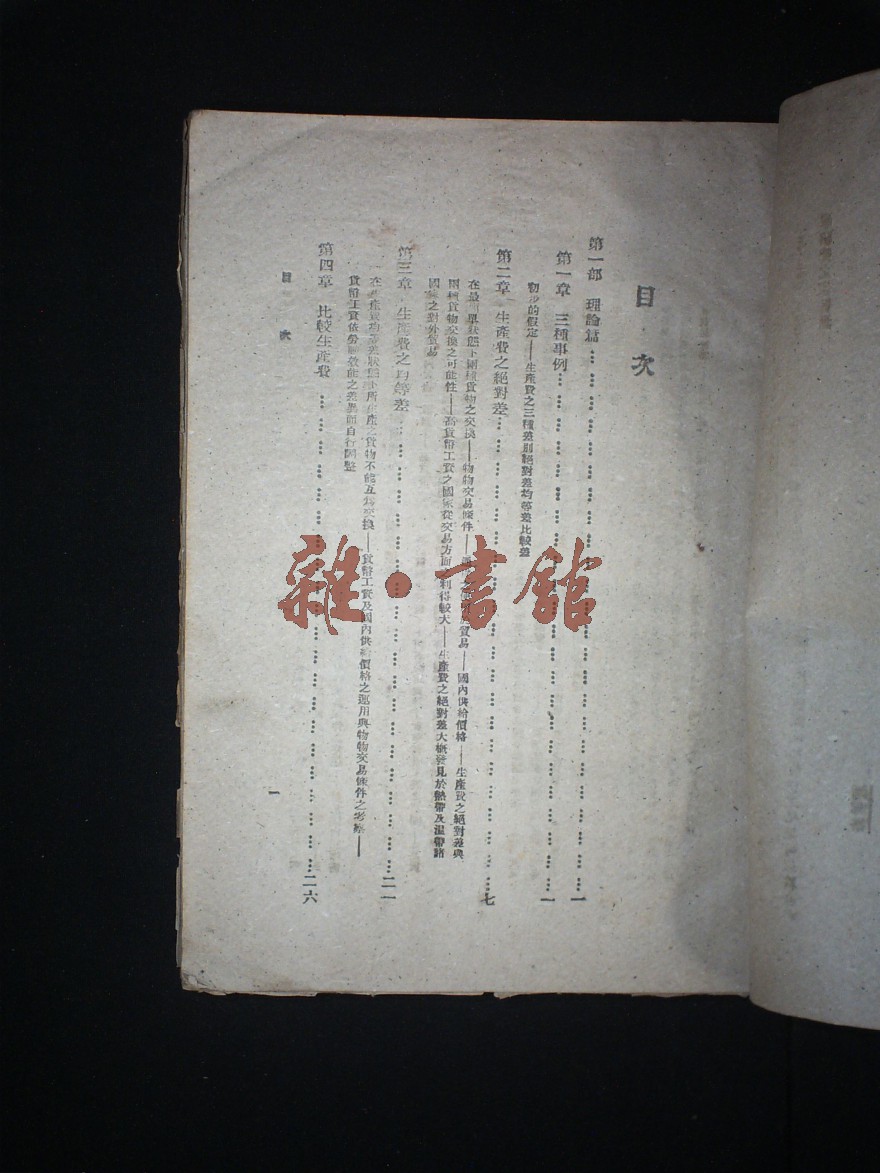 目次
第一部 理論篇……一
第一章 三種事例……一
初步的假定——生產費之三種差別絕對差均等差比較差
第二章 生產費之絕對差……七
在最簡單狀態下兩種貨物之交換——物物交易條件——貿易——國內供給價格——生產費之絕對差與
兩種貨物交換之可能性——高貨幣工資之國家在交易方面利得較大——生產費之絕對差大概發見於熱帶及溫帶諸
國家之對外貿易
第三章 生產費之均等差……二一
在生產費均等差狀態下所生產之貨物不能互為交換——貨幣工資及國內供給價格之運用與物物交易條件之考察——
貨幣工資依勞動效能之差異而自行調整
第四章 比較生產費……二六
目次
一
雜·書館